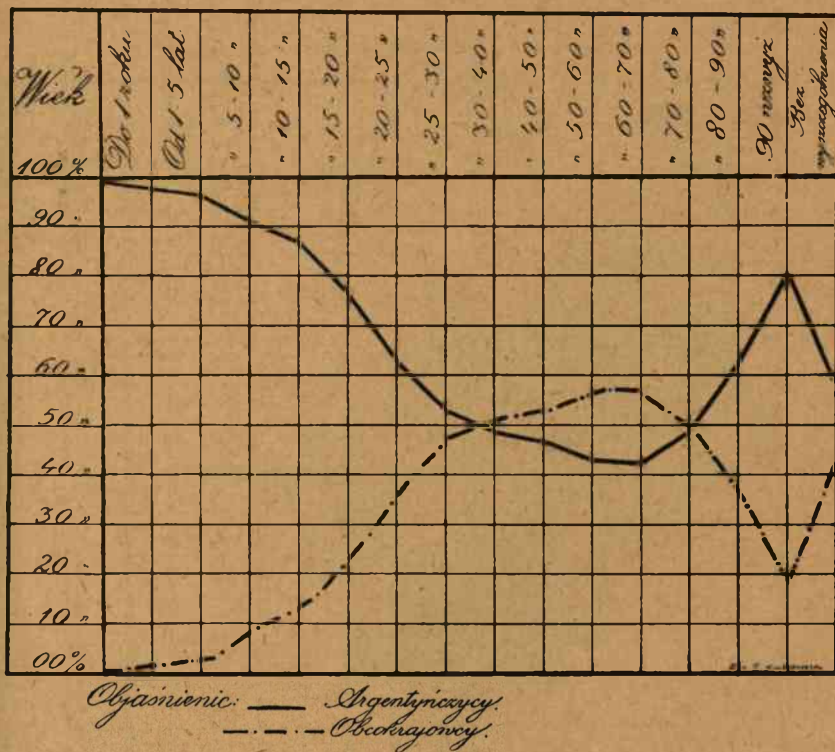 Wiek
Do 1 roku
Od 1-5 lat
" 5-10 "
" 10-15 "
" 15-20 "
" 20-25 "
" 25-30 "
" 30-40 "
" 40-50 "
" 50-60 "
" 60-70 "
" 70-80 "
" 80-90 "
90 i
Bez
100%
90 "
80 "
70 "
60 "
50 "
40 "
30 "
20 "
10 "
00%
Objaśnienie: Argentyńczycy.
Obcokrajowcy.